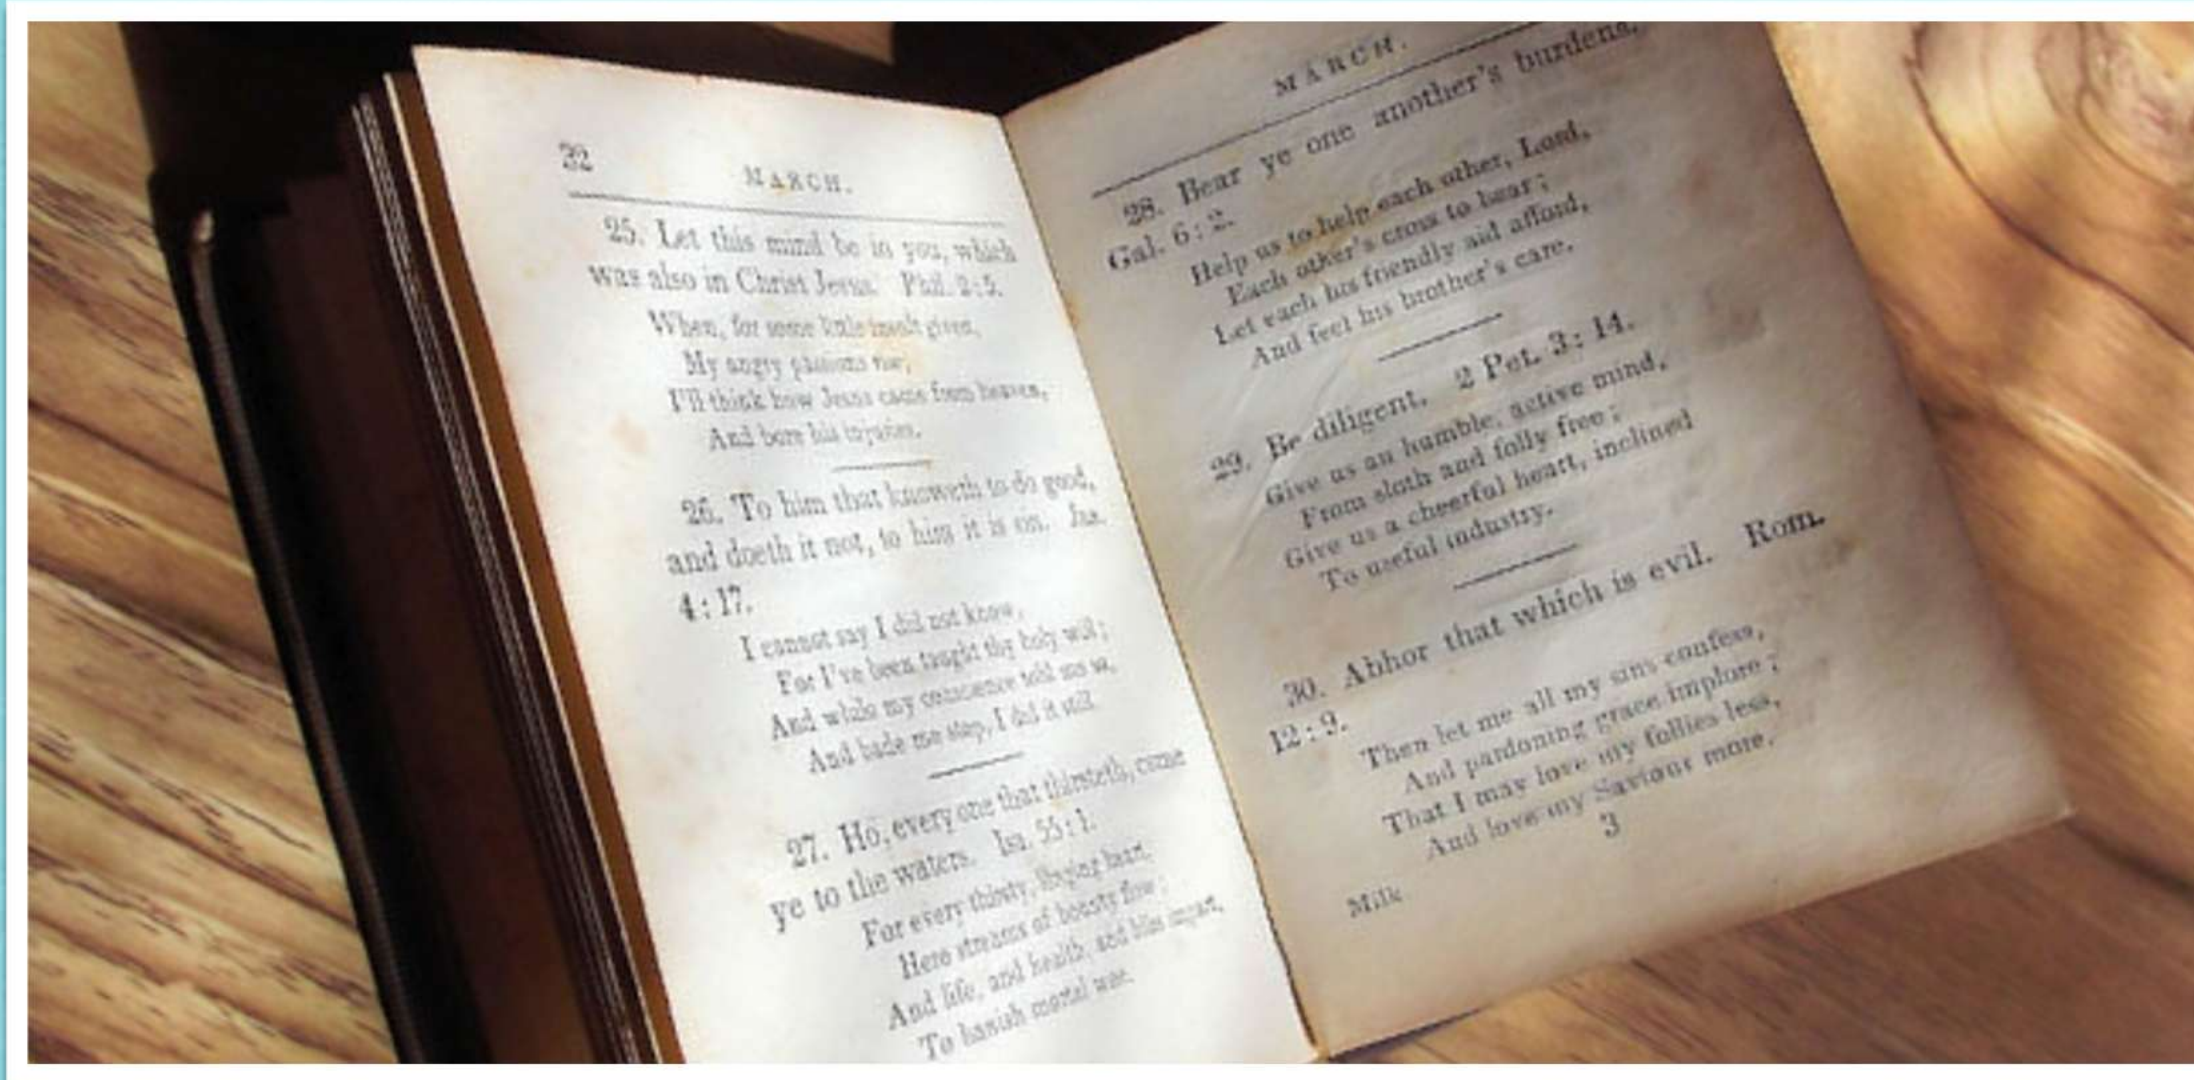 32
MARCH.
25. Let this mind be in you, which
was also in Christ Jesus. Phil. 2:5.
When, for some little insult given,
My angry passions rise,
I'll think how Jesus came from heaven,
And bore his injuries.
26. To him that knoweth to do good,
and doeth it not, to him it is sin. Jas.
4:17.
I cannot say I did not know,
For I've been taught thy holy will;
And while my conscience told me so,
And bade me stop, I did it still.
27. Ho, every one that thirsteth, come
ye to the waters. Isa. 55:1.
For every thirsty, longing heart,
Here streams of bounty flow;
And life, and health, and bliss impart,
To banish mortal woe.
MARCH.
28. Bear ye one another's burdens.
Gal. 6:2.
Help us to help each other, Lord,
Each other's cross to bear;
Let each his friendly aid afford,
And feel his brother's care.
29. Be diligent. 2 Pet. 3:14.
Give us an humble, active mind,
From sloth and folly free;
Give us a cheerful heart, inclined
To useful industry.
30. Abhor that which is evil. Rom.
12:9.
Then let me all my sins confess,
And pardoning grace implore;
That I may love my follies less,
And love my Saviour more.
3
Milk